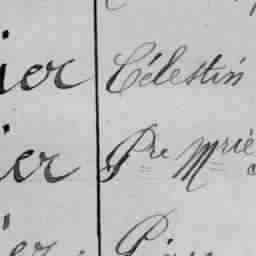 ier Célestin
ier Pre Mrie